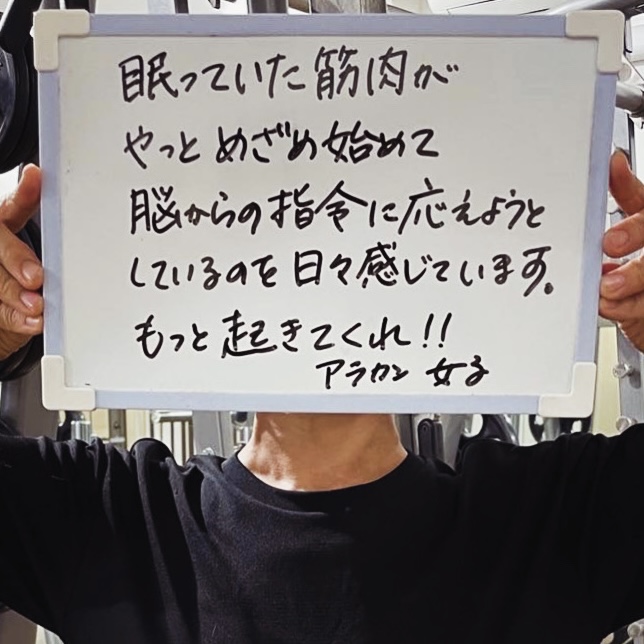 眠っていた筋肉が
やっとめざめ始めて
脳からの指令に応えようと
しているのを日々感じています。
もっと起きてくれ!!
アラカン女子